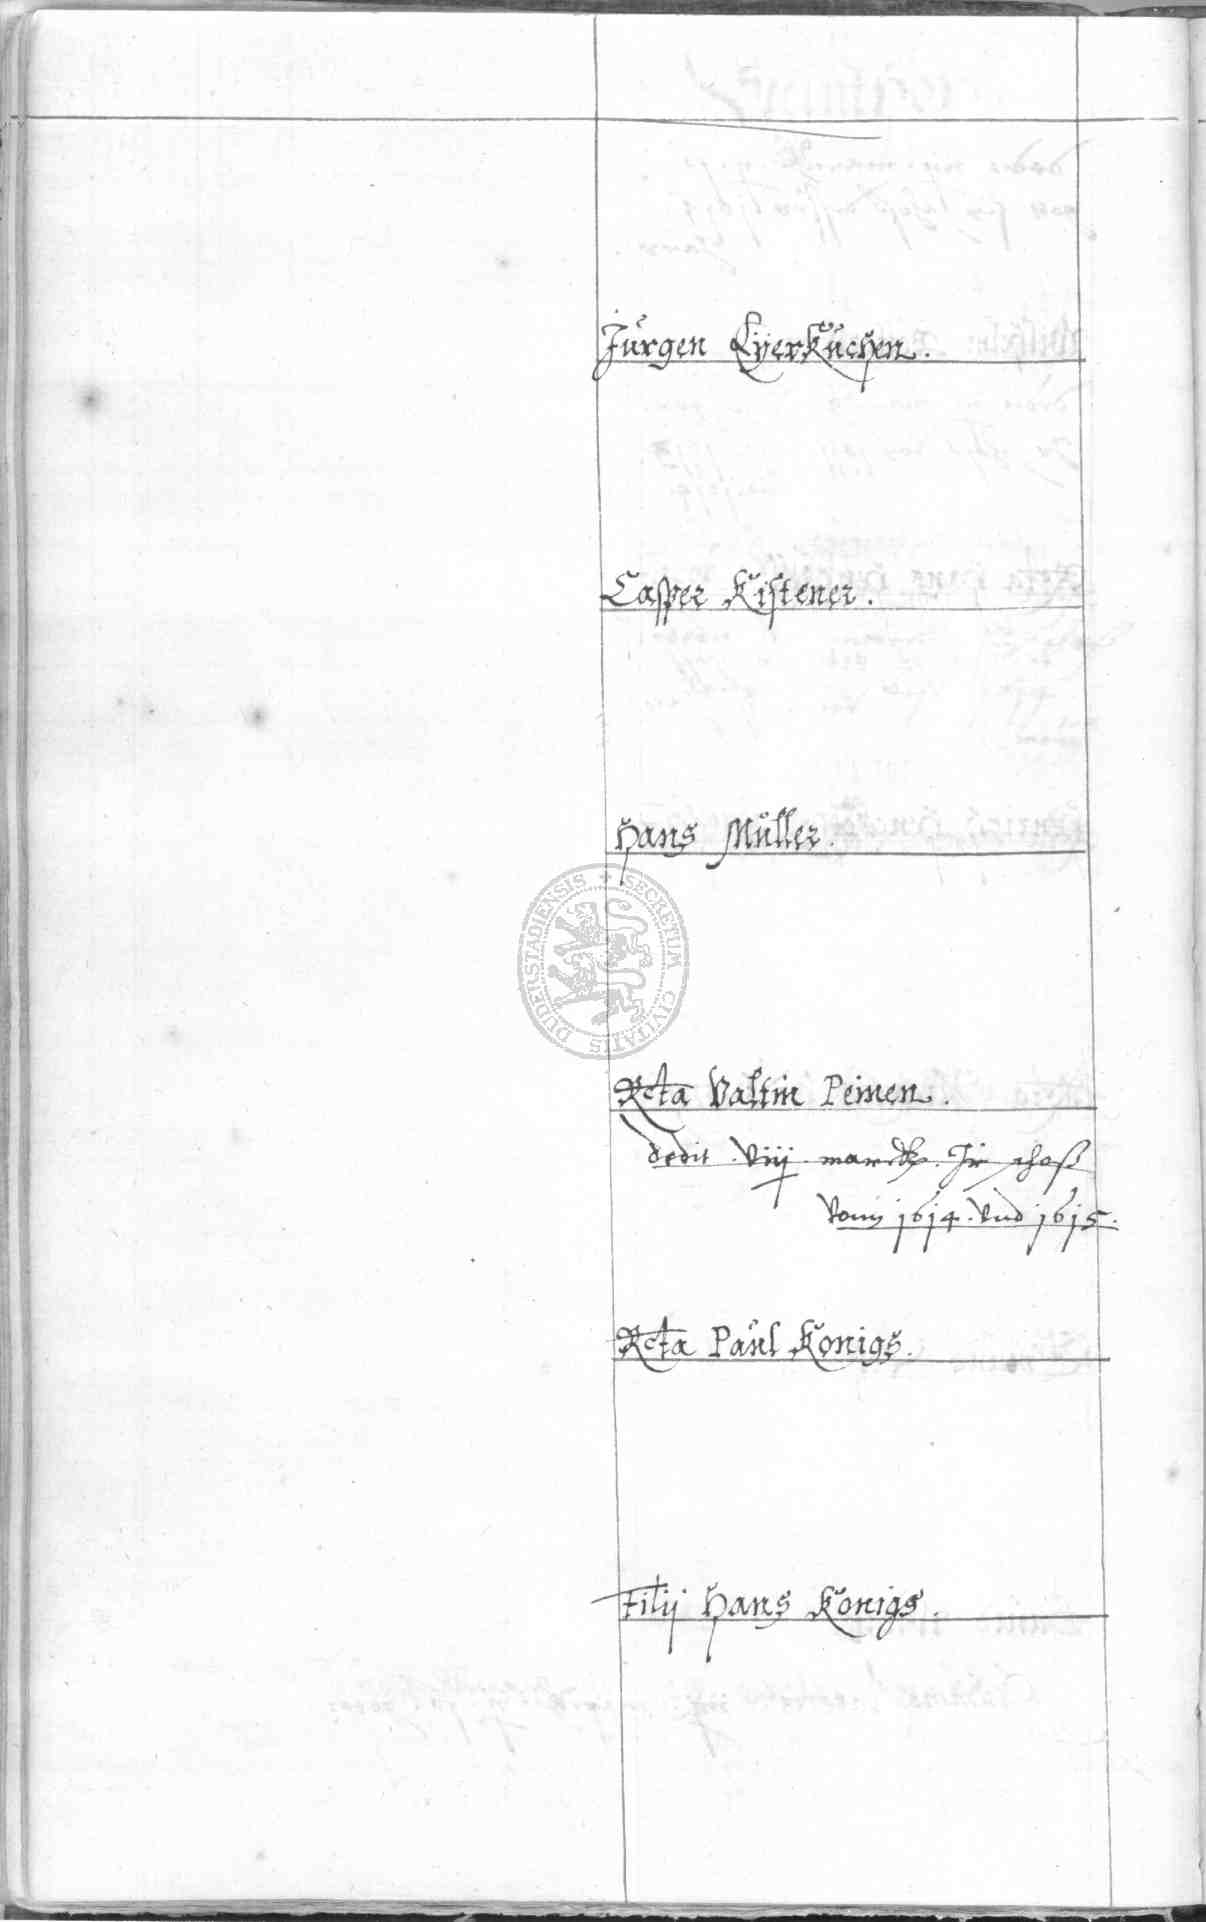 Jürgen Eyerküchen.
Casper Kistener.
Hans Müller.
DUDERSTADIENSIS + SECRETUM CIVITATIS
Rcta Valtin Peinen.
dedit viij marck. Ir schoß
vom 1614. Vnd 1615.
Rcta Paul Konigs.
Filij Hans Konigs.